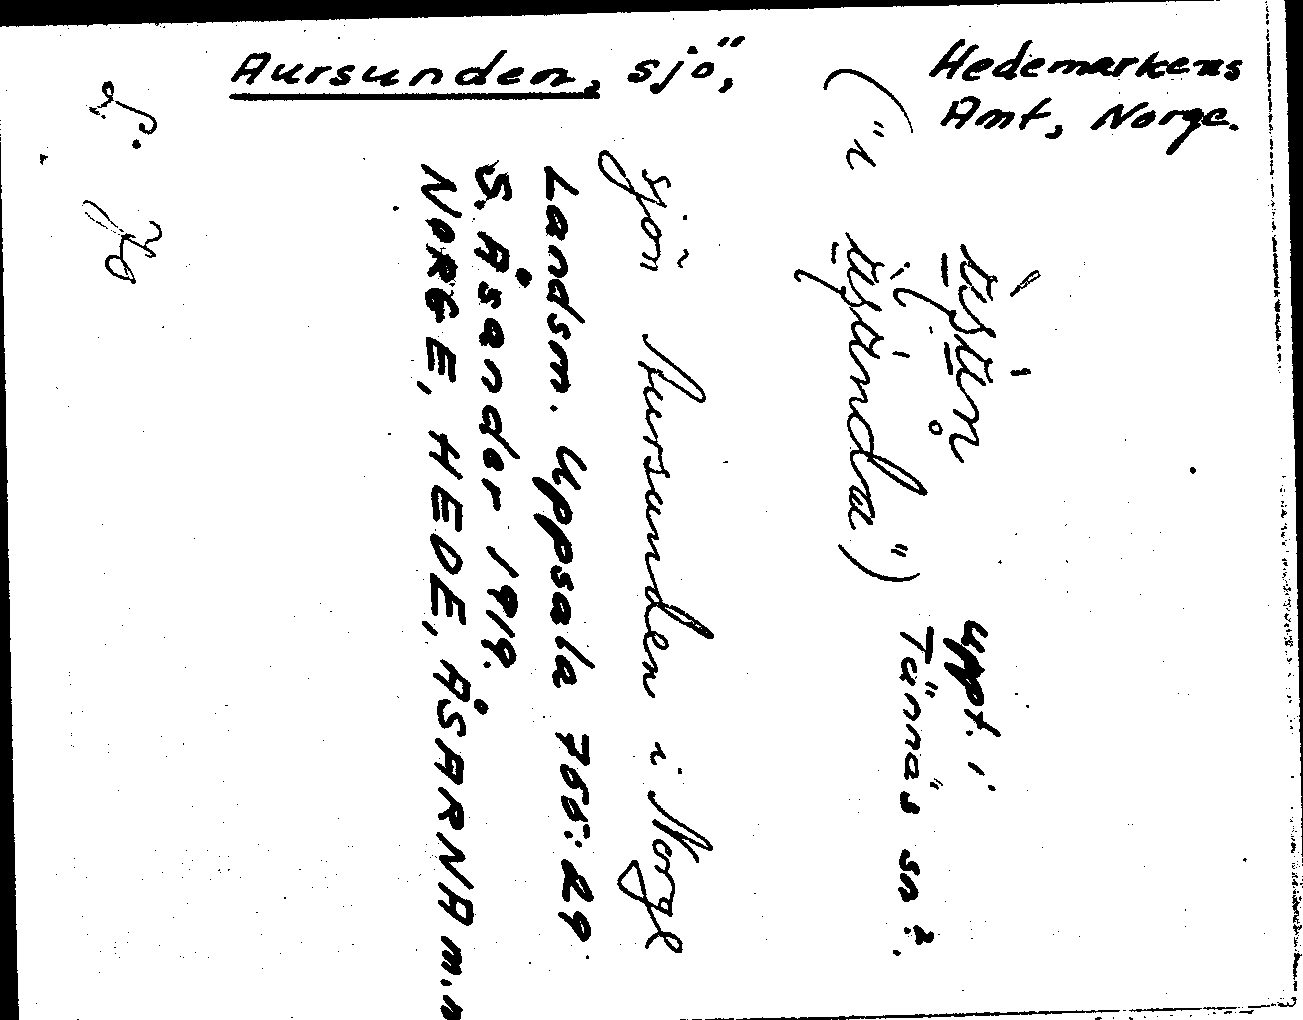 Aursunden, sjö,
Hedemarkens
Amt, Norge.
uppt. i
Tännäs sn?
sjön Aursunden i Norge
Landsm. Uppsala 755:29
S. Åsander 1919.
NORGE, HEDE, ÅSARNA m.n